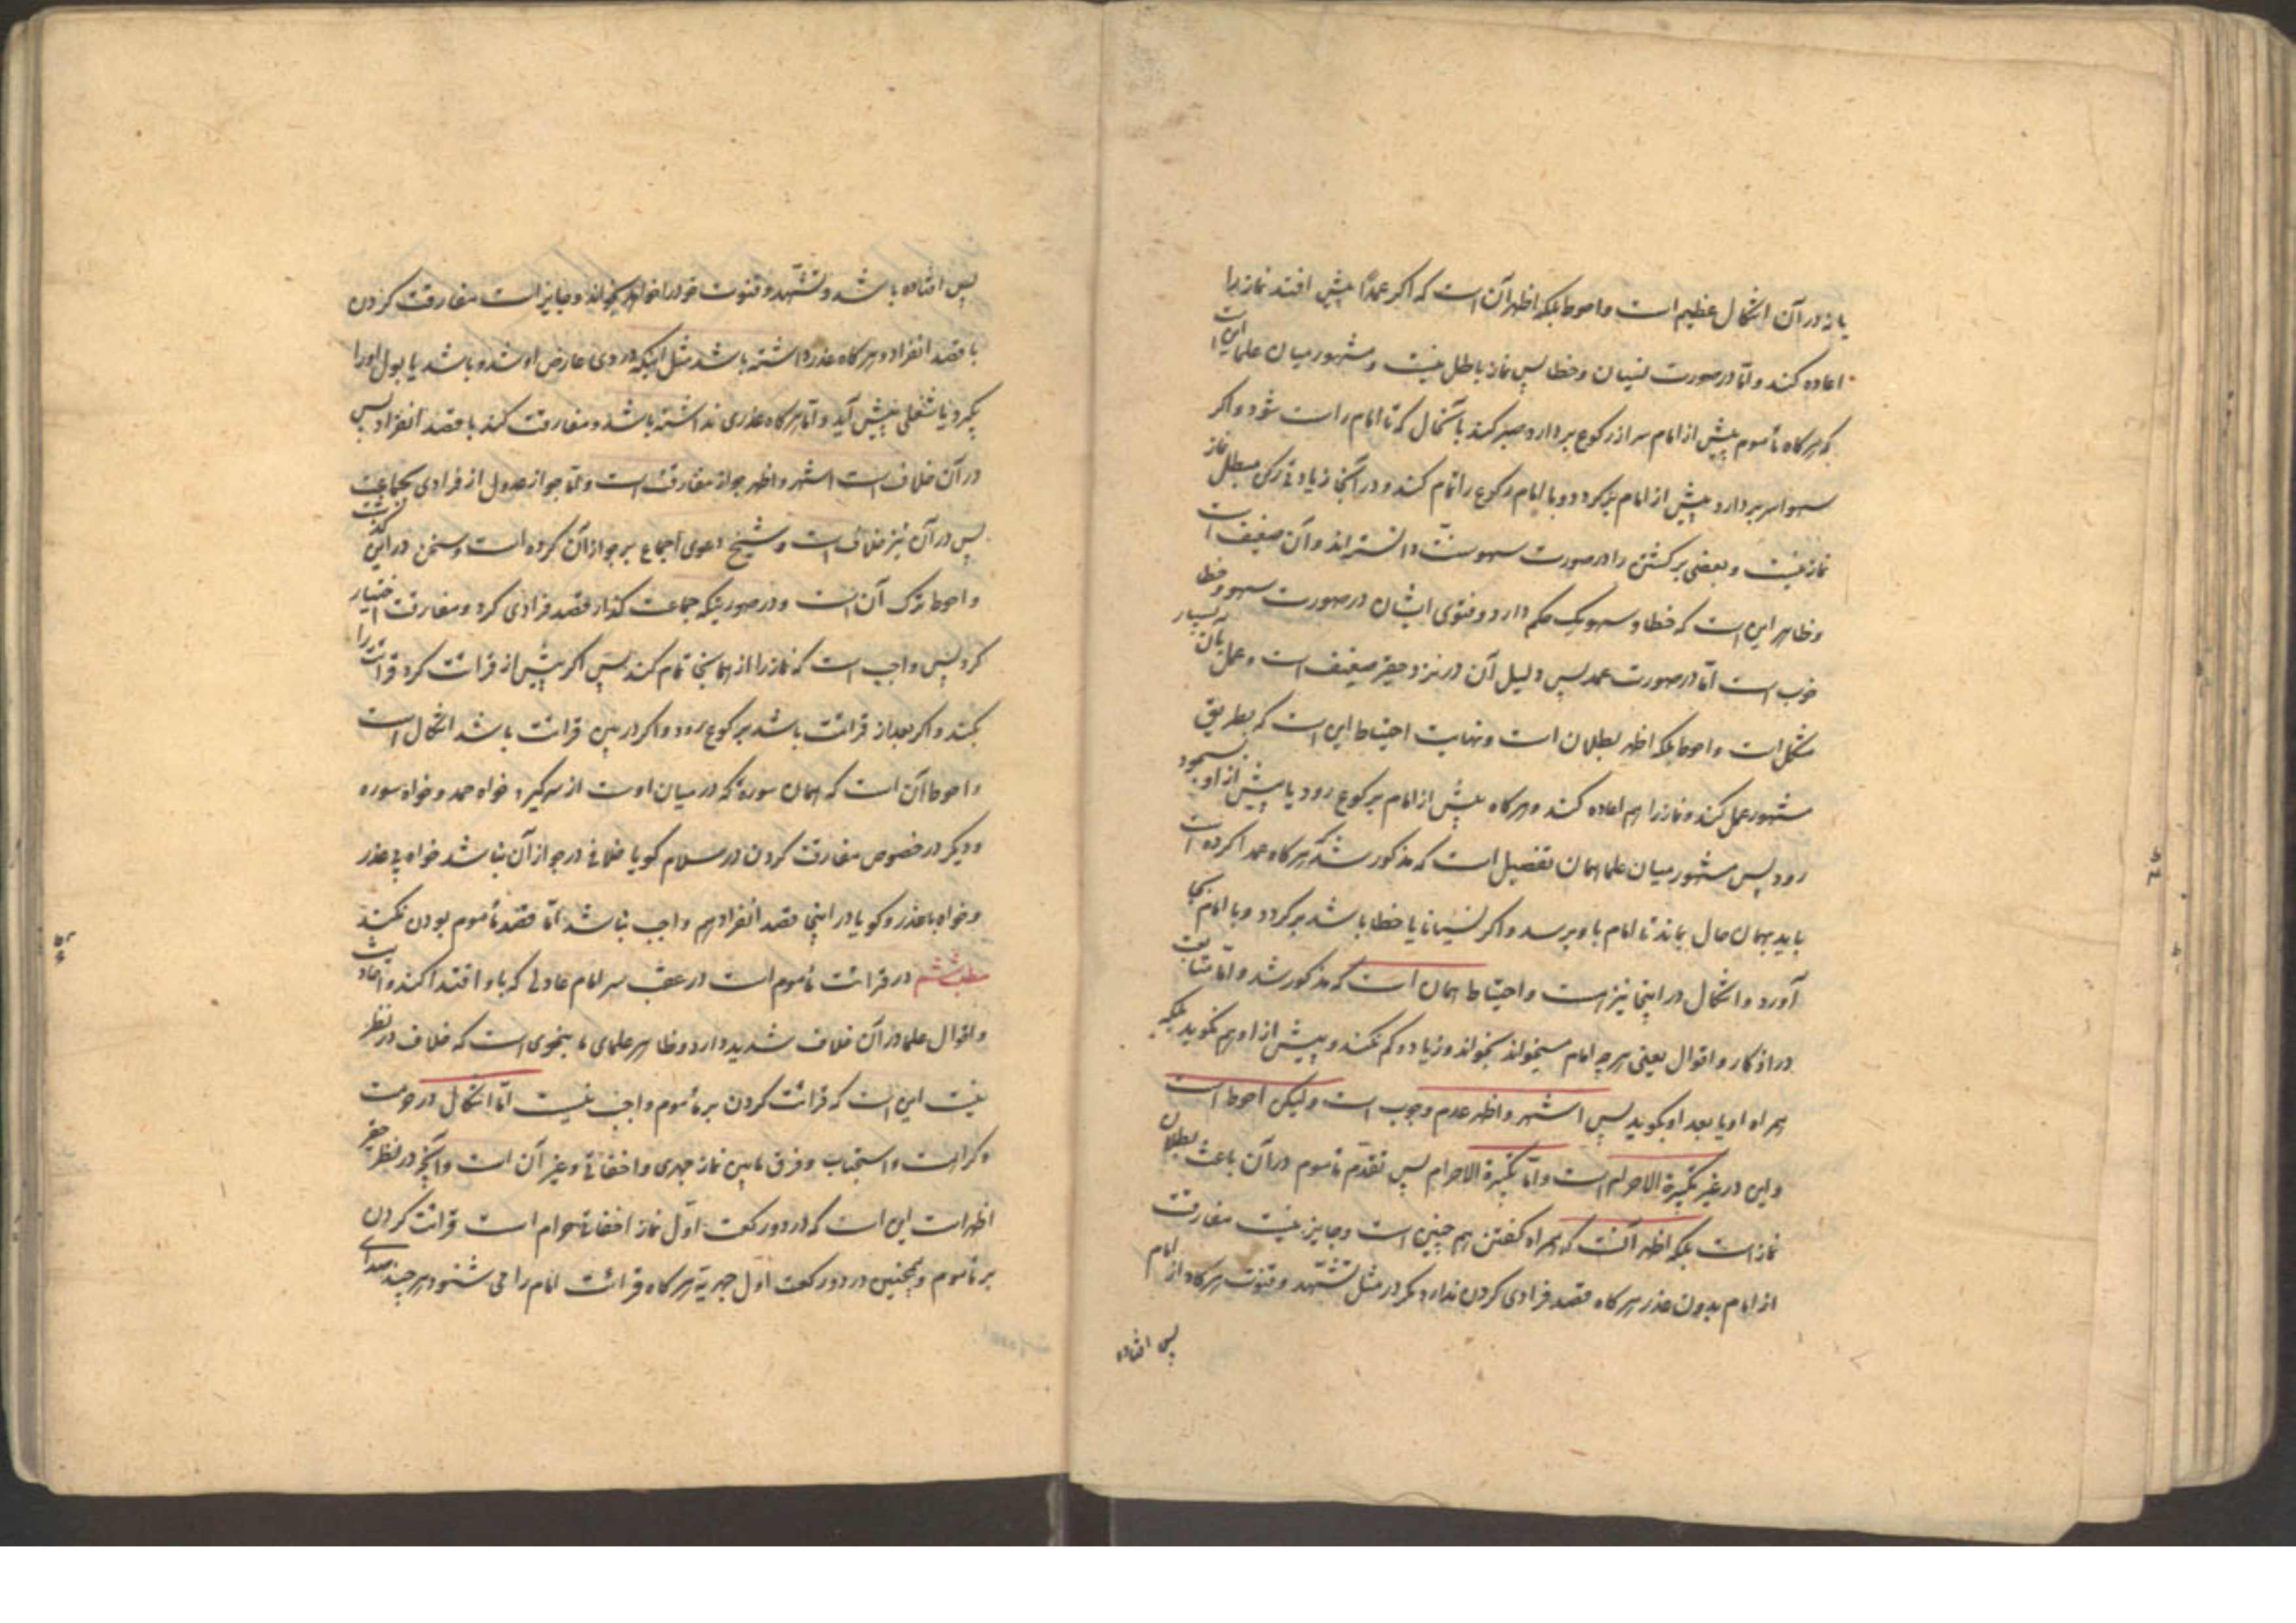 یا نه در آن اشکال عظیم است و احوط بلکه اظهر آن است که اگر عمداً پیش افتد نماز را
اعاده کند و امّا در صورت نسیان و خطا پس نماز باطل نیست و مشهور میان علما این است
که هرگاه مأموم پیش از امام سر از رکوع بردارد صبر کند بآنحال که تا امام راست شود و اگر
سهوا سر بردارد پیش از امام برگردد و با امام رکوع را تمام کند و در اینجا زیادتی رکن مبطل نماز
نماز نیست و بعضی برگشتن را در صورت سهو سنّت دانسته‌اند و آن ضعیف است
و ظاهر این است که خطا و سهو یک حکم دارد و فتوی ایشان در صورت سهو و خطا
خوب است امّا در صورت عمد پس دلیل آن در نزد حقیر ضعیف است و عمل بآن بسیار
مشکل است و احوط بلکه اظهر بطلان است و نهایت احتیاط این است که بطریق
مشهور عمل کند و نماز را هم اعاده کند و هرگاه پیش از امام برکوع رود یا پیش از او بسجود
رود پس مشهور میان علما همان تفصیل است که مذکور شد که هرگاه عمدا کرده است
باید بهمان حال بماند تا امام باو برسد و اگر نسیانا یا خطا باشد برگردد و با امام بجا
آورد و اشکال در اینجا نیز هست و احتیاط همان است که مذکور شد و امّا متابعت
در اذکار و اقوال یعنی هر چه امام میخواند بخواند و زیاد و کم نکند و پیش از او هم نگوید بلکه
همراه او یا بعد او بگوید پس اشهر و اظهر عدم وجوب است و لیکن احوط است
و این در غیر تکبیرة الاحرام است و امّا تکبیرة الاحرام پس تقدّم مأموم در آن باعث بطلان
نماز است بلکه اظهر آنست که همراه گفتن هم چنین است و جایز نیست مفارقت
از امام بدون عذر هرگاه قصد فرادی کردن ندارد مگر در مثل تشهّد و قنوت هرگاه از امام
پس افتاده
پس افتاده باشد و تشهّد و قنوت خود را خواهد بخواند و جایز است مفارقت کردن
با قصد انفراد و هرگاه عذر داشته باشد مثل اینکه دردی عارض او شده باشد یا بول او را
بگیرد یا شغلی پیش آید و امّا هرگاه عذری نداشته باشد و مفارقت کند با قصد انفراد پس
در آن خلاف است اشهر و اظهر جواز مفارقت است و امّا جواز عدول از فرادی بجماعت
پس در آن نیز خلاف است و شیخ دعوی اجماع بر جواز آن کرده است و سخن در این
و احوط ترک آن است و در صورتیکه جماعت گذار قصد فرادی کرد و مفارقت اختیار
کرد پس واجب است که نماز را از همانجا تمام کند پس اگر پیش از قرائت کرد قرائت را
بکند و اگر بعد از قرائت باشد برکوع رود و اگر در بین قرائت باشد اشکال است
و احوط آن است که همان سوره که در میان اوست از سر گیرد خواه حمد و خواه سوره
و دیگر در خصوص مفارقت کردن در سلام گویا خلافی در جواز آن نباشد خواه بی عذر
و خواه با عذر و گویا در اینجا قصد انفراد هم واجب نباشد امّا قصد مأموم بودن نکند
مطلب ششم در قرائت مأموم است در عقب سر امام عادلی که باو اقتدا کند و احادیث
و اقوال علما در آن خلاف شدید دارد و ظاهر علمای ما بنحوی است که خلاف در نظر
نیست این است که قرائت کردن بر مأموم واجب نیست امّا اشکال در حرمت
و کراهت و استحباب و فرق مابین نماز جهری و اخفاتی و غیر آن است و آنچه در نظر حقیر
اظهر است این است که در دو رکعت اوّل نماز اخفاتی حرام است قرائت کردن
بر مأموم و همچنین در دو رکعت اول جهریّه هرگاه قرائت امام را می شنود هر چند صدای